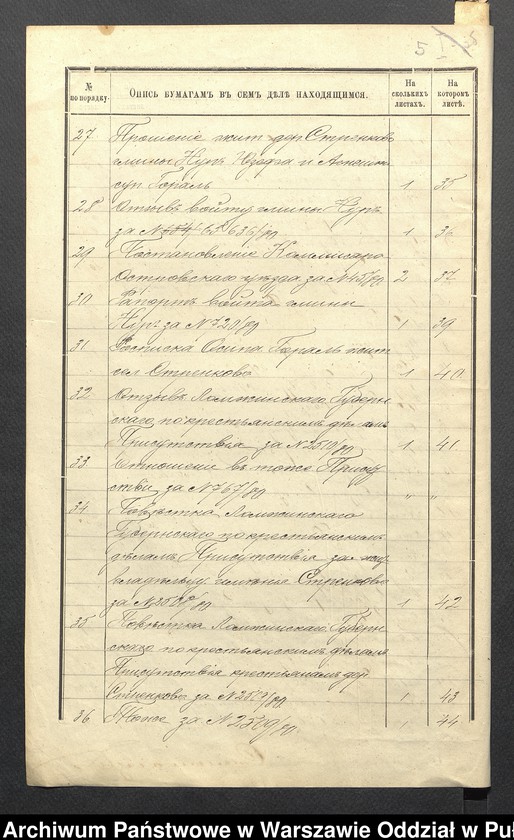 5
№ по порядку.
Опись бумагамъ въ семъ дѣлѣ находящимся.
На сколькихъ листахъ.
На которомъ листѣ.
27 Прошеніе жит. дер. Стренково
гмины Нуръ Юзефа и
суп. Гораль 1 35
28 Отзывъ войту гмины Нуръ
за № 636/90 1 36
29 Постановленіе Коммисара
Островскаго уѣзда за № 45/90 2 37
30 Рапортъ войта гмины
Нуръ за № 720/90 1 39
31 Росписка Осипа Гораль жит
сел Стренково 1 40
32 Отзывъ Ломжинскаго Губерн
скаго по крестьянскимъ дѣламъ
Присутствія за № 2519/90 1 41
33 Отношеніе въ тоже Присут
ствіе за № 767/90 " "
34 Повѣстка Ломжинскаго
Губернскаго по крестьянскимъ
дѣламъ Присутствія за
владѣльцу имѣнія Стренково
за № 1 42
35 Повѣстка Ломжинскаго Губерн
скаго по крестьянскимъ дѣламъ
Присутствія крестьянамъ дер
Стренково за № 1 43
36 Тоже за № 2519/90 1 44
Archiwum Państwowe w Warszawie Oddział w Puł